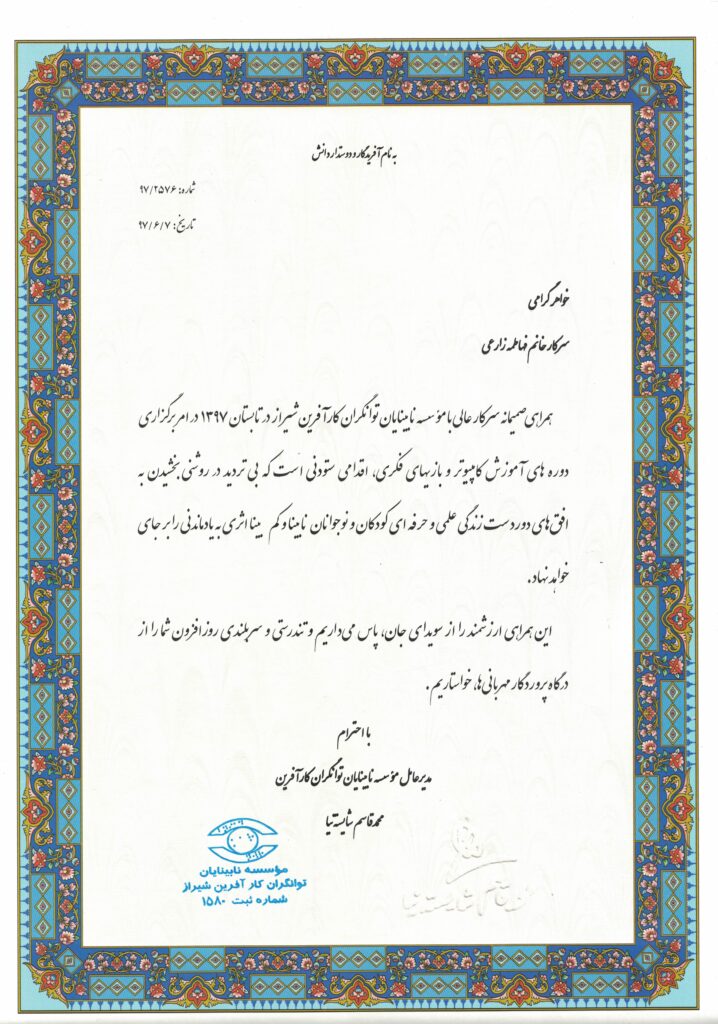 به نام آفریدگار و دوستدار دانش
شماره: ۹۷/۲۵۷۶
تاریخ: ۹۷/۶/۷
خواهر گرامی
سرکار خانم فهاطمه زارعی
همراهی صمیمانه سرکار عالی با مؤسسه نابینایان توانگران کارآفرین شیراز در تابستان ۱۳۹۷ در امر برگزاری
دوره های آموزش کامپیوتر و بازیهای فکری، اقدامی ستودنی است که بی تردید در روشنی بخشیدن به
افق های دوردست زندگی علمی و حرفه ای کودکان و نوجوانان نابینا و کم بینا اثری به یادماندنی را بر جای
خواهد نهاد.
این همراهی ارزشمند را از سویدای جان، پاس می‌داریم و تندرستی و سربلندی روزافزون شما را از
درگاه پروردگار مهربانی ها، خواستاریم.
با احترام
مدیرعامل مؤسسه نابینایان توانگران کارآفرین
محمدقاسم شایسته نیا
مؤسسه نابینایان
توانگران کار آفرین شیراز
شماره ثبت ۱۵۸۰